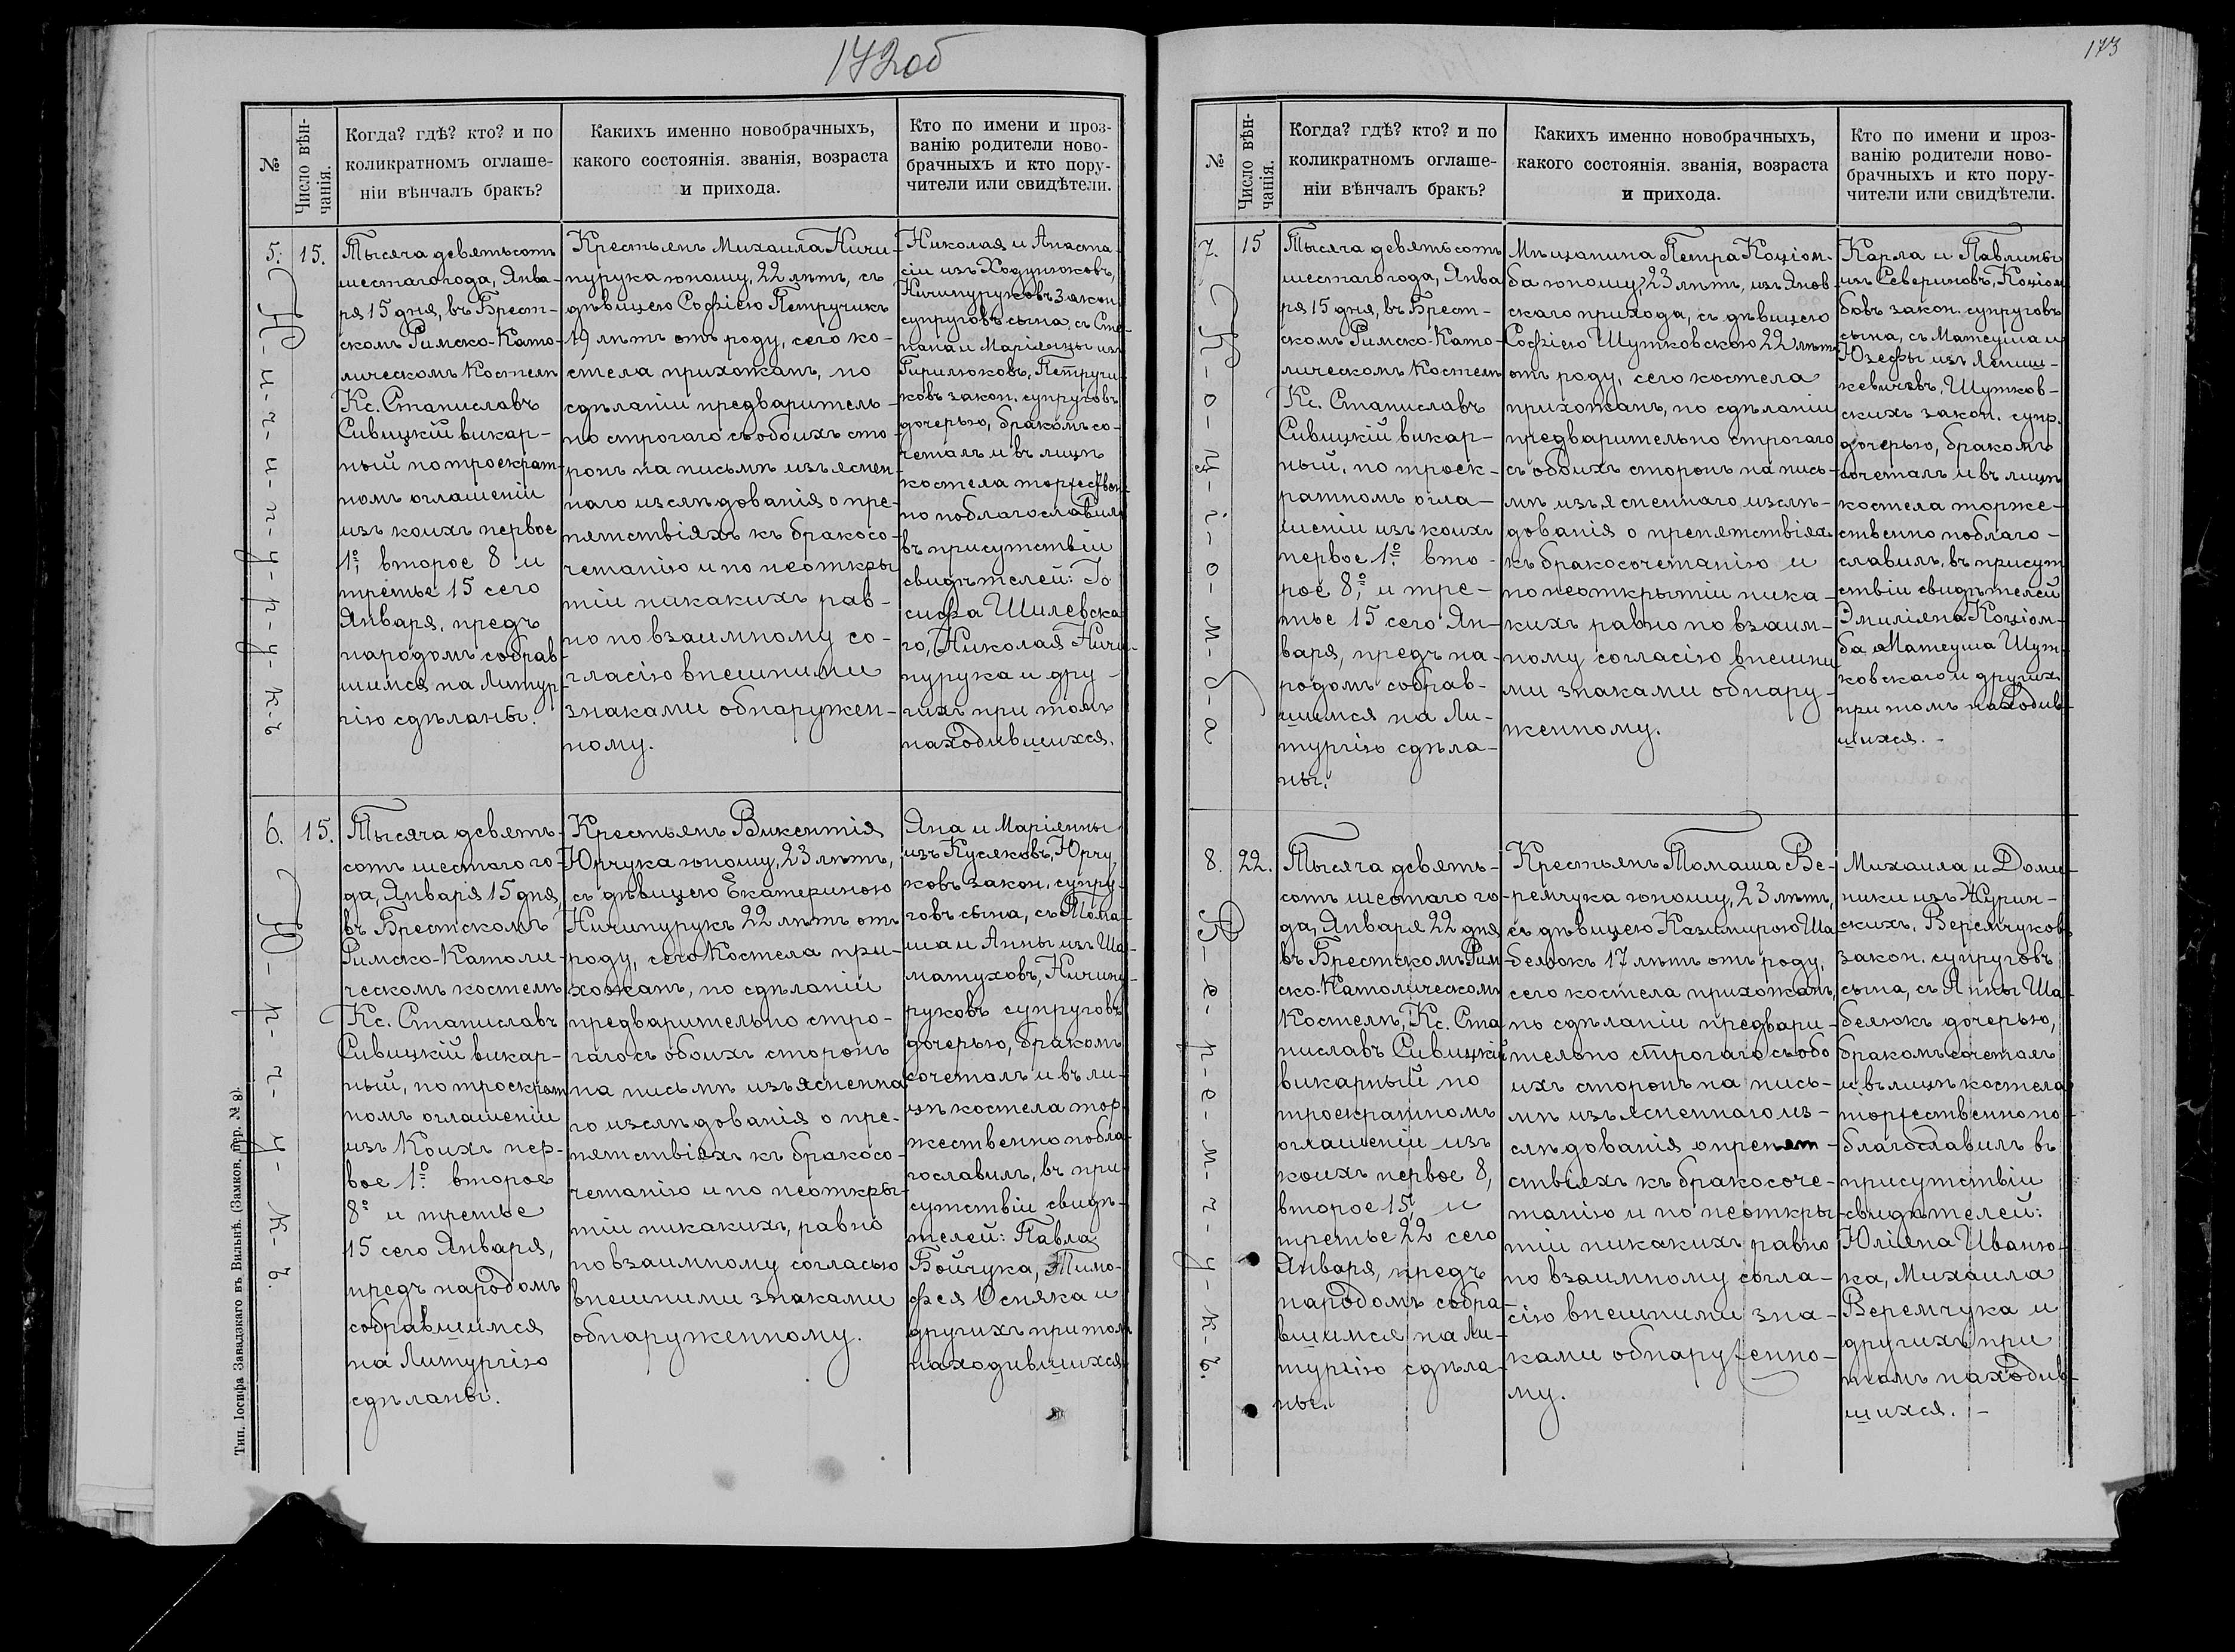 172об
№
Число вѣн-
чанія.
Когда? гдѣ? кто? и по
коликратномъ оглаше-
ніи вѣнчалъ бракъ?
Какихъ именно новобрачныхъ,
какого состоянія. званія, возраста
и прихода.
Кто по имени и проз-
ванію родители ново-
брачныхъ и кто пору-
чители или свидѣтели.
5.
Н-и-ч-и-п-у-р-у-к-ъ
15.
Тысяча девятьсотъ
шестаго года, Янва-
ря 15 дня, въ Брест-
скомъ Римско-Като-
лическомъ Костелѣ
Кс. Станиславъ
Сивицкій викар-
ный по троекрат-
номъ оглашеніи
изъ коихъ первое
1º, второе 8 и
третье 15 сего
Января, предъ
народомъ собрав-
шимся на Литур-
гію сдѣланы.
Крестьянъ Михаила Ничи-
пурука юношу, 22 лѣтъ, съ
дѣвицею Софіею Петручикъ
19 лѣтъ отъ роду, сего ко-
стела прихожанъ, по
сдѣланіи предваритель-
но строгаго съ обоихъ сто-
ронъ на письмѣ изъяснен-
наго изслѣдованія о пре-
пятствіяхъ къ бракосо-
четанію и по неоткры
тіи никакихъ рав-
но по взаимному со-
гласію внешними
знаками обнаружен-
ному.
Николая и Анаста-
сіи изъ Ходунюковъ,
Ничипуруковъ закон.
супруговъ сына, съ Сте-
пана и Маріянны изъ
Гирилюковъ, Петручи-
ковъ закон. супруговъ
дочерью, бракомъ со-
четалъ и въ лицѣ
костела торжествен-
но поблагославилъ
въ присутствіи
свидѣтелей: Іо
сифа Шилевска-
го, Николая Ничи-
пурука и дру-
гихъ при томъ
находившихся.
6.
Ю-р-ч-у-к-ъ.
15.
Тысяча девять-
сотъ шестаго го-
да, Января 15 дня,
въ Брестскомъ
Римско-Католи-
ческомъ костелѣ
Кс. Станиславъ
Сивицкій викар-
ный, по троекрат
номъ оглашеніи
изъ Коихъ пер-
вое 1º второе
8º и третье
15 сего Января,
предъ народомъ
собравшимся
на Литургію
сдѣланы.
Крестьянъ Викентія
Юрчука юношу, 23 лѣтъ,
съ дѣвицею Екатериною
Ничипурукъ 22 лѣтъ отъ
роду, сего Костела при-
хожанъ, по сдѣланіи
предварительно стро-
гаго съ обоихъ сторонъ
на письмѣ изъясненна
го изслѣдованія о пре-
пятствіяхъ къ бракосо-
четанію и по неоткры-
тіи никакихъ, равно
по взаимному согласью
внешними знаками
обнаруженному.
Яна и Маріянны
изъ Кусяковъ, Юрчу
ковъ закон. супру-
говъ сына, съ Тома-
ша и Анны изъ Ша-
матуховъ, Ничипу-
руковъ супруговъ
дочерью, бракомъ
сочеталъ и въ ли-
цѣ костела тор-
жественно побла-
гославилъ, въ при-
сутствіи свидѣ-
телей: Павла
Бойчука, Тимо-
фея Осняка и
другихъ при томъ
находившихся
Тип. Іосифа Завадзкаго въ Вильнѣ. (Замков. пер. № 8).
173
№
Число вѣн-
чанія.
Когда? гдѣ? кто? и по
коликратномъ оглаше-
ніи вѣнчалъ бракъ?
Какихъ именно новобрачныхъ,
какого состоянія. званія, возраста
и прихода.
Кто по имени и проз-
ванію родители ново-
брачныхъ и кто пору-
чители или свидѣтели.
7.
К-о-ц-і-о-м-б-а
15
Тысяча девятьсотъ
шестаго года, Янва
ря 15 дня, въ Брест-
скомъ Римско-Като-
лическомъ Костелѣ
Кс. Станиславъ
Сивицкій викар-
ный, по троек-
ратномъ огла-
шеніи изъ коихъ
первое 1º вто-
рое 8º, и тре-
тье 15 сего Ян-
варя, предъ на-
родомъ собрав-
шимся на Ли-
тургію сдѣла-
ны.
Мѣщанина Петра Коціом-
ба юношу, 23 лѣтъ, изъ Янов
скаго прихода, съ дѣвицею
Софіею Шутковскою 22 лѣтъ
отъ роду, сего костела
прихожанъ, по сдѣланіи
предварительно строгаго
съ обоихъ сторонъ на пись-
мѣ изъясненнаго изслѣ-
дованія о препятствіяхъ
къ бракосочетанію и
по неоткрытіи ника-
кихъ равно по взаим-
ному согласію внешни
ми знаками обнару-
женному.
Карла и Павлины
изъ Севериновъ, Коціом
бовъ закон. супруговъ
сына, съ Матеуша и
Юзефы изъ Лепиш-
кевичевъ, Шутков-
скихъ закон. супр.
дочерью, бракомъ
сочеталъ и въ лицѣ
костела торже-
ственно поблаго-
славилъ, въ присут
ствіи свидѣтелей
Эмиліяна Коціом-
ба Матеуша Шут-
ковскаго и другихъ
при томъ находив-
шихся.
8.
В-е-р-е-м-ч-у-к-ъ.
22.
Тысяча девять-
сотъ шестаго го-
да, Января 22 дня
въ Брестскомъ Рим-
ско-Католическомъ
Костелѣ, Кс. Ста
ниславъ Сивицкій
викарный по
троекратномъ
оглашеніи изъ
коихъ первое 8,
второе 15, и
третье 22 сего
Января, предъ
народомъ собра-
вшимся на Ли-
тургію сдѣла-
ны.
Крестьянъ Томаша Ве-
ремчука юношу, 23 лѣтъ,
съ дѣвицею Казимирою Ша
белюкъ 17 лѣтъ отъ роду,
сего костела прихожанъ,
по сдѣланіи предвари-
тельно строгаго съ обо
ихъ сторонъ на пись-
мѣ изъясненнаго из-
слѣдованія о препят-
ствіяхъ къ бракосоче-
танію и по неоткры-
тіи никакихъ равно
по взаимному согла-
сію внешними зна-
ками обнаруженно-
му.
Михаила и Доми-
ники изъ Журин-
скихъ, Веремчуковъ
закон. супруговъ
сына, съ Анны Ша-
белюкъ дочерью,
бракомъ сочеталъ
и въ лицѣ костела
торжественно по-
благославилъ въ
присутствіи
свидѣтелей:
Юліяна Иваню-
ка, Михаила
Веремчука и
другихъ при
томъ находив-
шихся. -